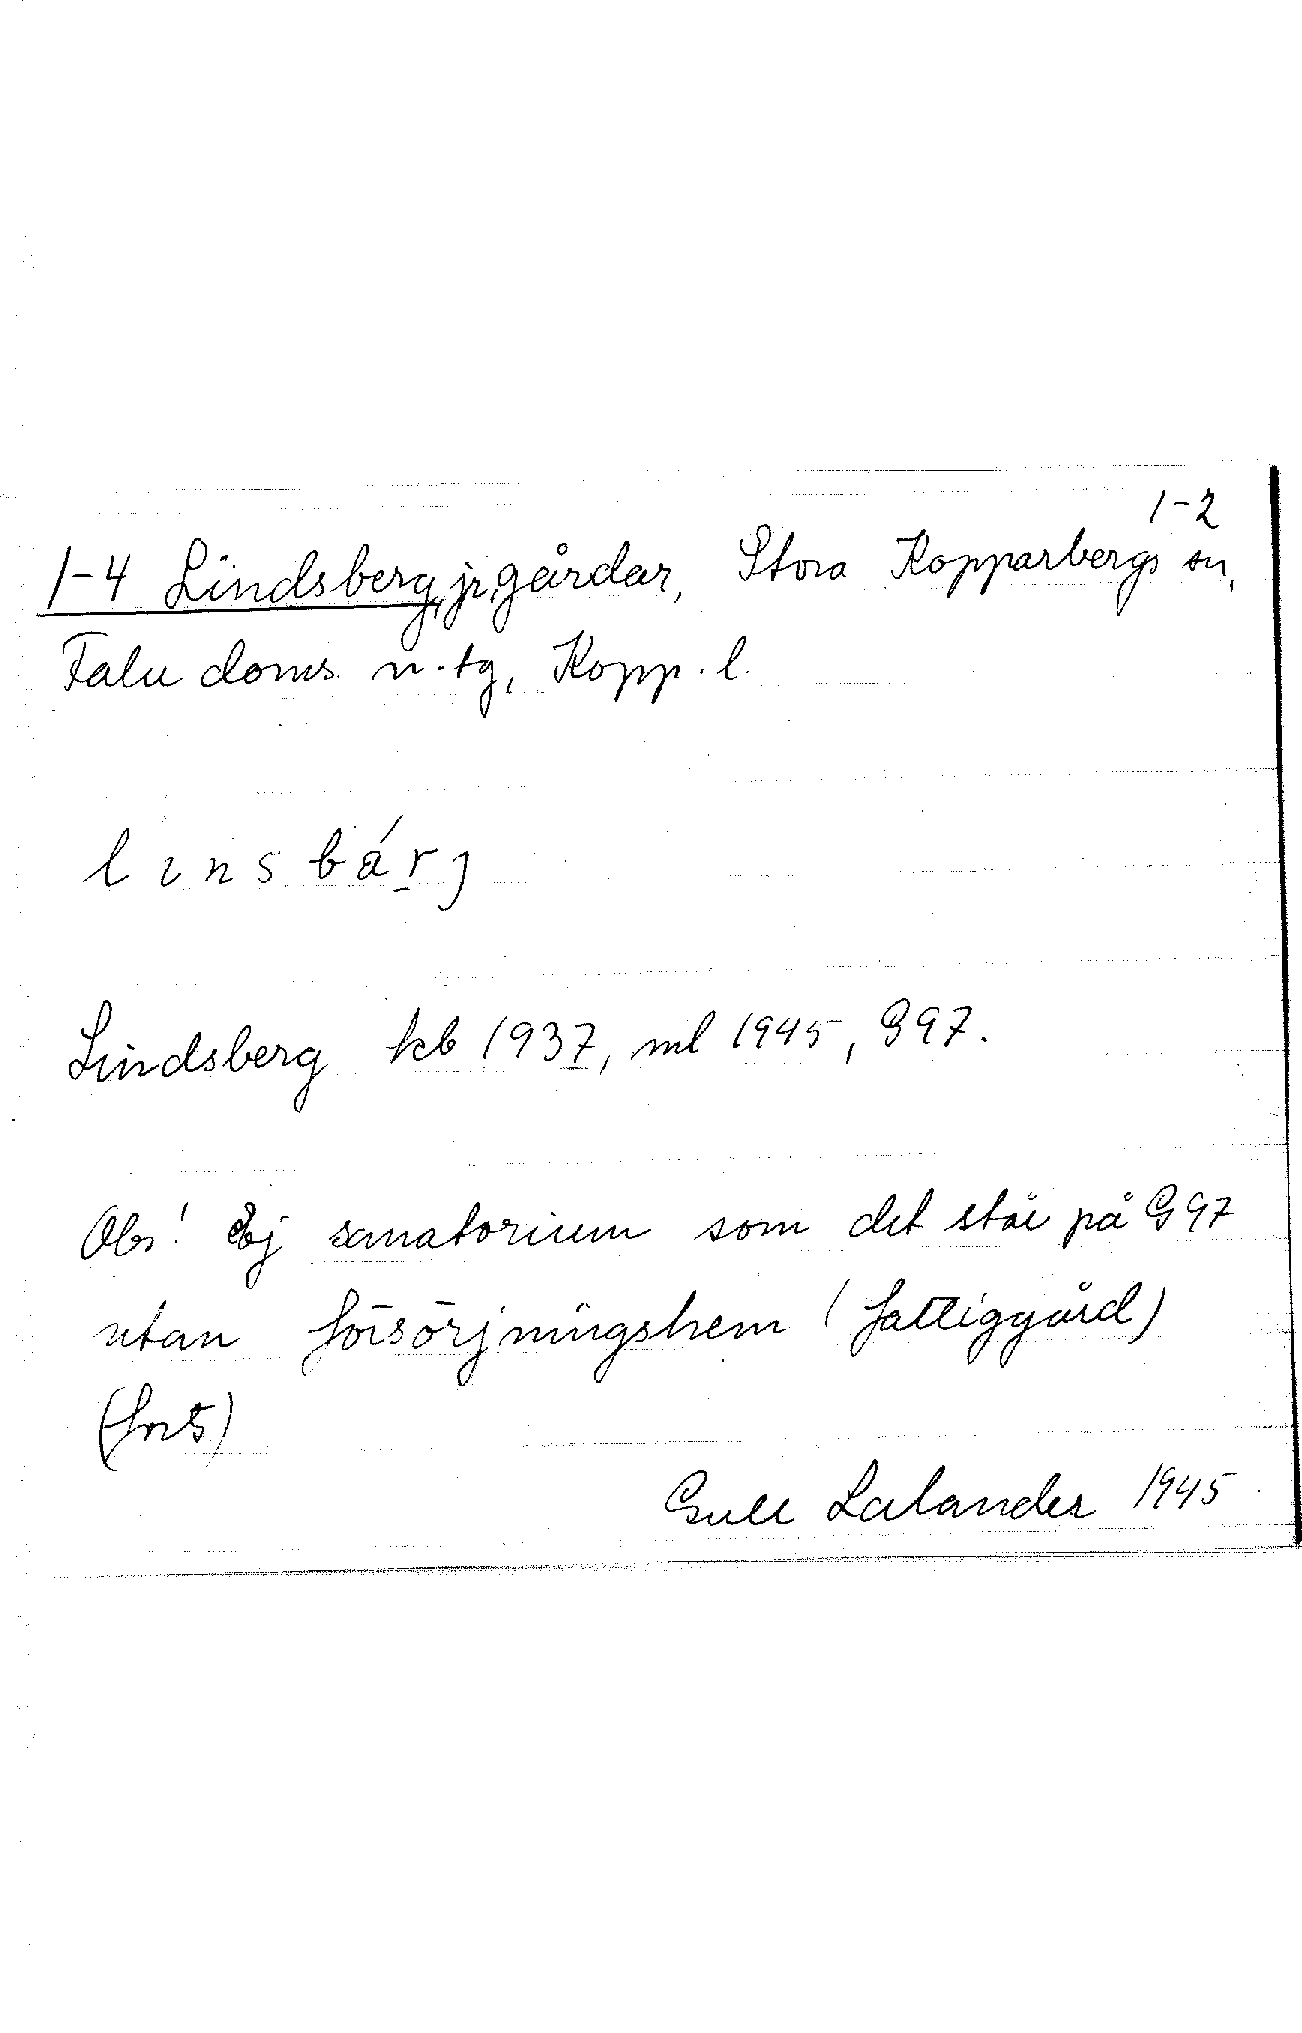 1-2
1-4 Lindsberg, jr, gårdar, Stora Kopparbergs sn,
Falu doms. n. tg, Kopp. l.
linsbárj
Lindsberg kb 1937, ml 1945, G97.
Obs! Ej sanatorium som det står på G97
utan försörjningshem (fattiggård)
Gull Lalander 1945